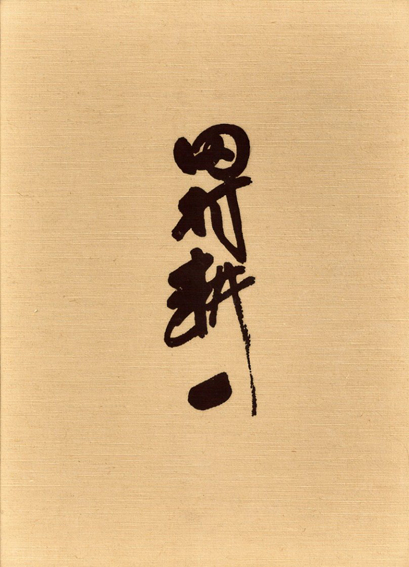 田村耕一